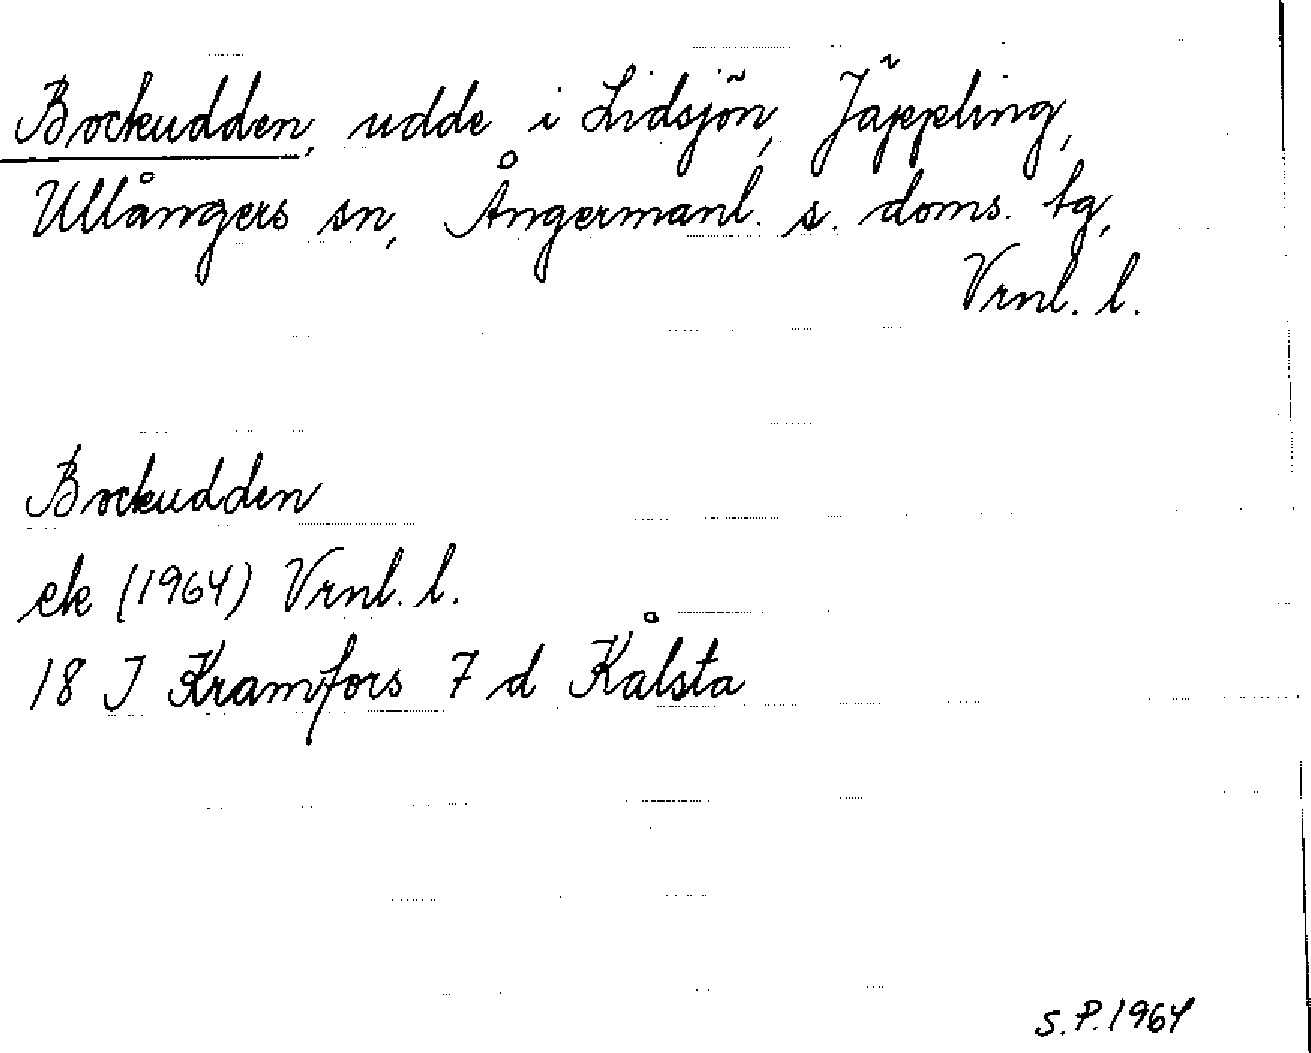 Bockudden, udde i Lidsjön, Jäppling,
Ullångers sn, Ångermanl. s. doms. tg,
Vrnl. l.
Bockudden
ek (1964) Vrnl. l.
18 J Kramfors 7 d Kålsta
S.P. 1964